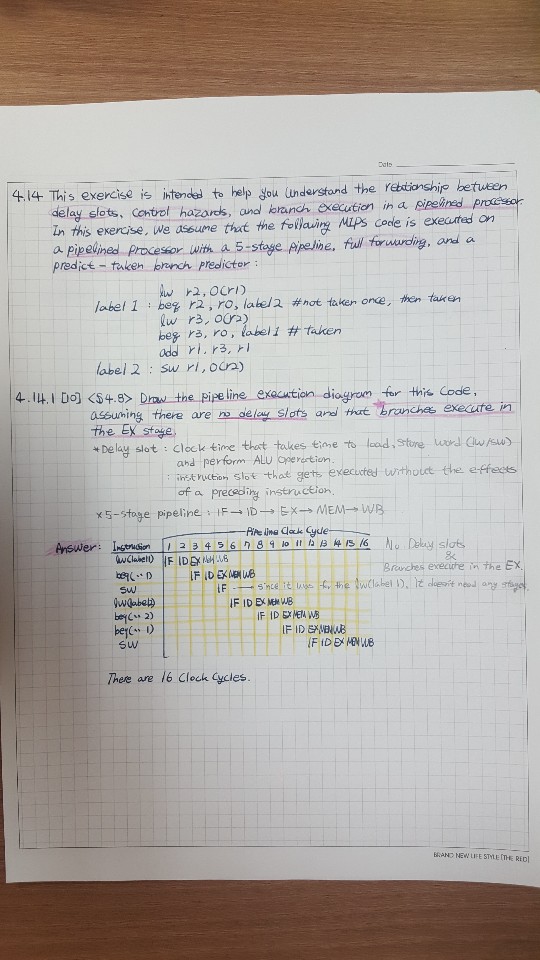 Date
4.14 This exercise is intended to help you understand the relationship between
delay slots, control hazards, and branch execution in a pipelined processor.
In this exercise, we assume that the following MIPS code is executed on
a pipelined processor with a 5-stage pipeline, full forwarding, and a
predict-taken branch predictor :
lw r2, 0(r1)
label 1 : beq r2, r0, label 2 #not taken once, then taken
lw r3, 0(r2)
beq r3, r0, label 1 # taken
add r1, r3, r1
label 2 : sw r1, 0(r2)
4.14.1 [10] <$4.8> Draw the pipeline execution diagram for this code,
assuming there are no delay slots and that branches execute in
the EX stage.
* Delay slot : Clock time that takes time to load, store word (lw/sw)
and perform ALU operation.
: instruction slot that gets executed without the effects
of a preceding instruction.
* 5-stage pipeline : IF → ID → EX → MEM → WB
Pipeline Clock Cycle
Answer: Instruction 1 2 3 4 5 6 7 8 9 10 11 12 13 14 15 16 No Delay slots
lw(label1) IF ID EX MEM WB &
Branches execute in the EX.
beq(.. 1) IF ID EX MEM WB
sw IF since it was the lw(label 1), it doesn't need any stages
lw(label2) IF ID EX MEM WB
beq(.. 2) IF ID EX MEM WB
beq(.. 1) IF ID EX MEM WB
SW IF ID EX MEM WB
There are 16 Clock Cycles.
BRAND NEW LIFE STYLE [THE RED]